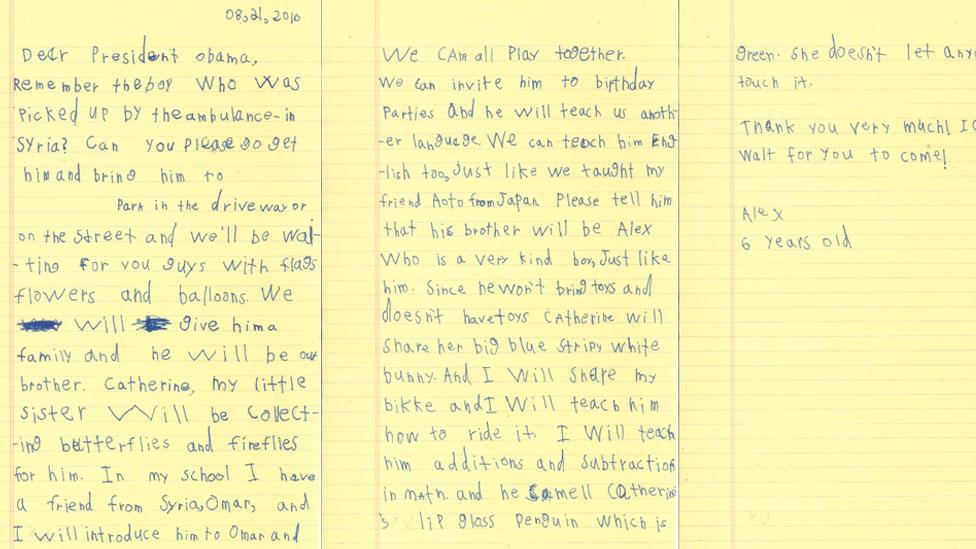 08,21,2010
Dear President obama,
Remember the boy who was
picked up by the ambulance in
Syria? Can you please go get
him and bring him to
Park in the driveway or
on the street and we'll be wai-
-ting for you guys with flags
flowers and balloons. We
will give him a
family and he will be our
brother. Catherine, my little
sister will be collect-
-ing butterflies and fireflies
for him. In my school I have
a friend from Syria, Omar, and
I will introduce him to Omar and
We can all play together.
We can invite him to birthday
parties and he will teach us anoth-
-er language. We can teach him Eng
-lish too, Just like we taught my
friend Aoto from Japan. Please tell him
that his brother will be Alex
Who is a very kind boy, Just like
him. Since he won't bring toys and
doesn't have toys Catherine will
share her big blue stripy white
bunny. And I will share my
bikke and I will teach him
how to ride it. I will teach
him additions and subtraction
in math. and he smell Catherine
's lip gloss penguin which is
green. She doesn't let any
touch it.
Thank you very much! I
wait for you to come!
Alex
6 years old